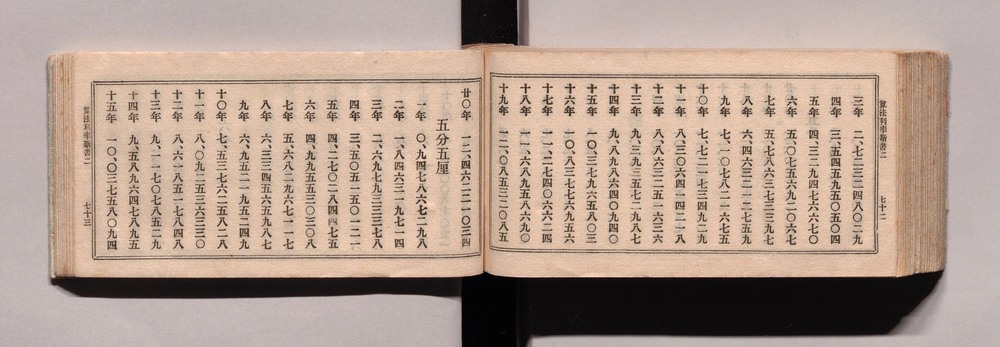 算法利率新書二
七十二
三年 二、七二三二四八〇二九
四年 三、五四五九五〇五〇四
五年 四、三二九四七六六七〇
六年 五、〇七五六九二〇六七
七年 五、七八六三七三三九七
八年 六、四六三二一二七五九
九年 七、一〇七八二一六七五
十〇年 七、七二一七三四九二九
十一年 八、三〇六四一四二一八
十二年 八、八六三二五一六三六
十三年 九、三九三五七二九八七
十四年 九、八九八六四〇九四〇
十五年 一〇、三七九六五八〇三
十六年 一〇、八三七七六九五六
十七年 一一、二七四〇六六二四
十八年 一一、六八九五八六九〇
十九年 一二、〇八五三二〇八五
廿〇年 一二、四六二二一〇三四
五分五厘
一年 〇、九四七八六七二九八
二年 一、八四六三一九七一四
三年 二、六九七九三三三七八
四年 三、五〇五一五〇一二一
五年 四、二七〇二八四四七五
六年 四、九九五五三〇三〇八
七年 五、六八二九六七一一七
八年 六、三三四五六五九八七
九年 六、九五二一九五二四九
十〇年 七、五三七六二五八二八
十一年 八、〇九二五三六三三〇
十二年 八、六一八五一七八四八
十三年 九、一一七〇七八五二九
十四年 九、五八九六四七八九五
十五年 一〇、〇三七五八〇九四
算法利率新書二
七十三